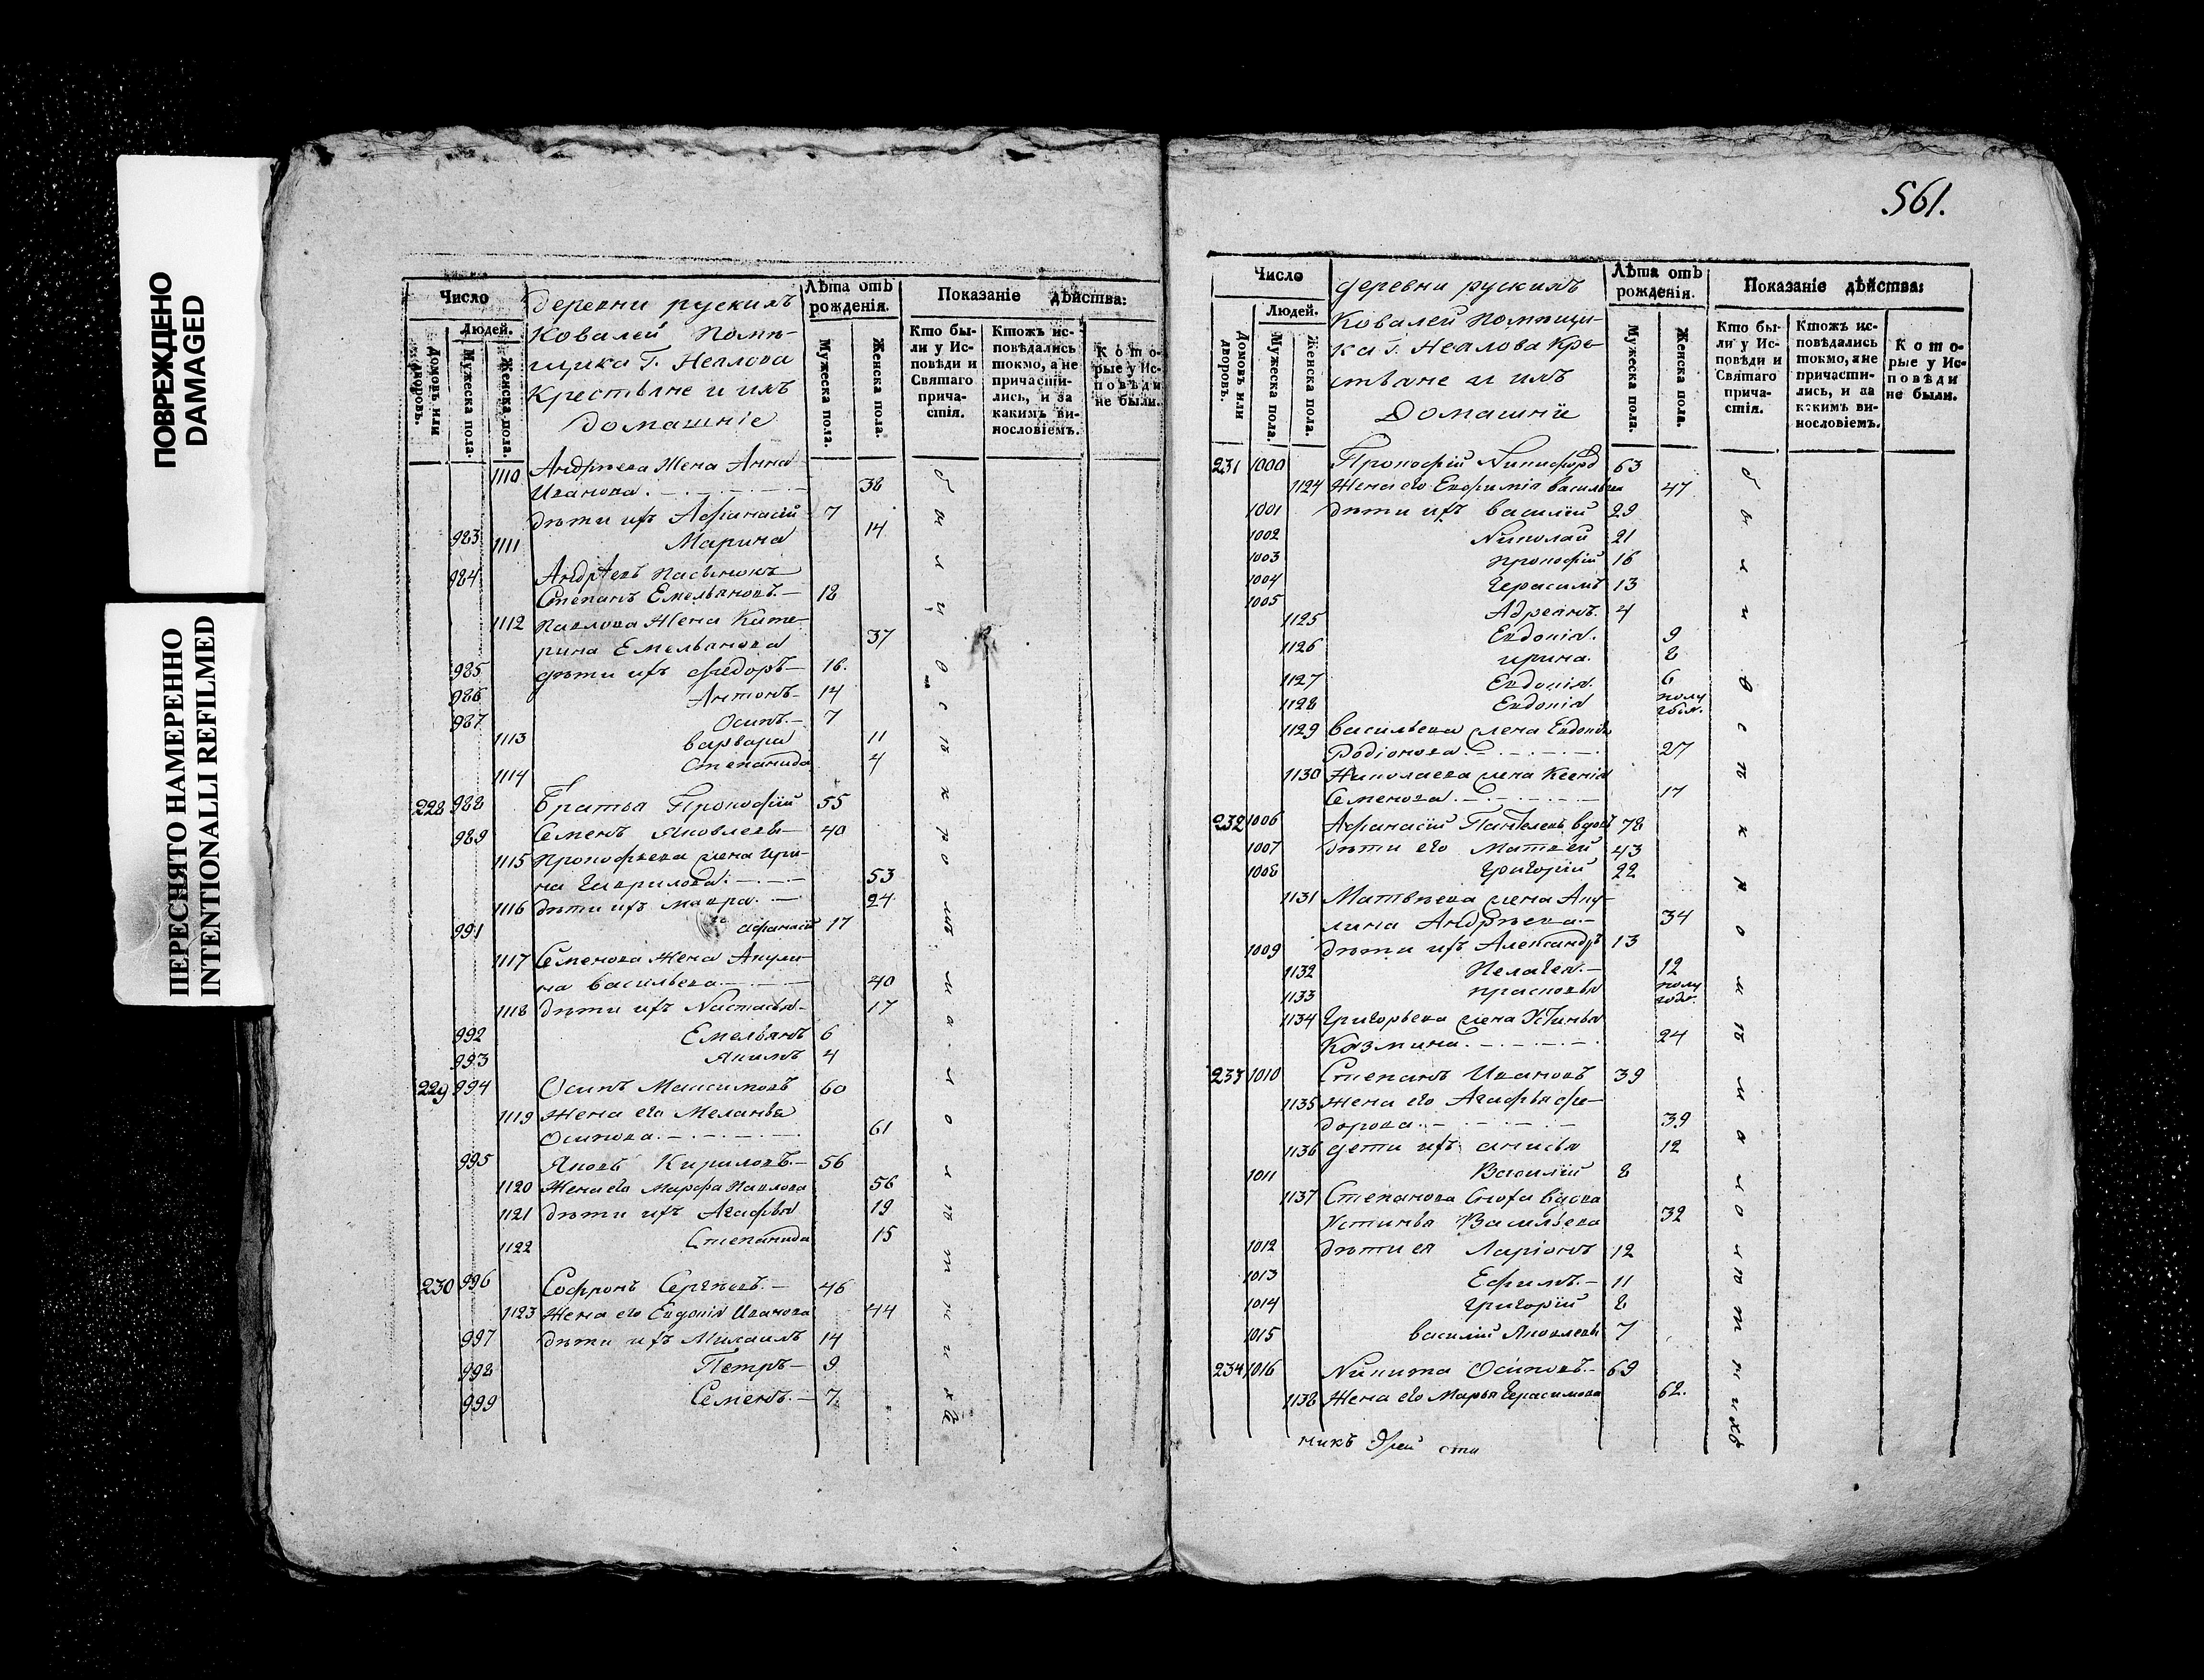 ПОВРЕЖДЕНО
DAMAGED
ПЕРЕСНЯТО НАМЕРЕННО
INTENTIONALLI REFILMED
Число
Людей.
Домовъ или дворовъ.
Мужеска пола.
Женска пола.
деревни рускихъ
Ковалей Помѣ-
щика Г. Неялова
Крестьяне и ихъ
домашніе
Лѣта отъ рожденія.
Мужеска пола.
Женска пола.
Показаніе дѣйства:
Кто бы-
ли у Ис-
повѣди и
Святаго
прича-
стія.
Ктожъ ис-
повѣдались
токмо, а не
причасти-
лись, и за
какимъ ви-
нословіемъ.
Кото-
рые у Ис-
повѣди
не были.
1110 Андрѣева Жена Анна
Иванова. 38
983 дѣти ихъ Афанасій 7
1111 Марина 14
984 Андрѣевъ пасынокъ
Степанъ Емельяновъ. 18
1112 Павлова Жена Кате-
рина Емельянова 37
985 дѣти ихъ Федоръ 16
986 Антонъ 14
987 Осипъ 7
1113 варвара 11
1114 Степанида 4
228 988 Братья Прокофій 55
989 Семенъ Яковлевы 40
1115 Прокофьева жена Ири-
на Гаврилова: 53
1116 дѣти ихъ Мавра 24
991 афанасій 17
1117 Семенова Жена Акули-
на васильева 40
1118 дѣти ихъ Настасья 17
992 Емельянъ 6
993 Якимъ 4
229 994 Осипъ Максимовъ 60
1119 Жена его Меланья
Осипова. 61
995 Яковъ Кириловъ. 56
1120 Жена его Марфа Павлова 56
1121 дѣти ихъ Агафья 19
1122 Степанида 15
230 996 Софронъ Сергѣевъ. 46
1123 Жена его Евдокія Иванова 44
997 дѣти ихъ Михаилъ 14
998 Петръ 9
999 Семенъ. 7
561.
Число
Людей.
Домовъ или дворовъ.
Мужеска пола.
Женска пола.
деревни рускихъ
Ковалей помѣщи-
ка Г. Неялова Кре-
стьяне и ихъ
Домашніи
Лѣта отъ рожденія.
Мужеска пола.
Женска пола.
Показаніе дѣйства:
Кто бы-
ли у Ис-
повѣди и
Святаго
прича-
стія.
Ктожъ ис-
повѣдались
токмо, а не
причасти-
лись, и за
какимъ ви-
нословіемъ.
Кото-
рые у Ис-
повѣди
не были.
231 1000 Прокофій Никифоръ 63
1124 Жена его Евфимія васильева 47
1001 дѣти ихъ василій 29
1002 Николай 21
1003 прокофій 16
1004 Герасимъ 13
1005 Адреянъ. 4
1125 Евдокія. 9
1126 ирина. 8
1127 Евдокія. 6
1128 Евдокія полу годя.
1129 васильева жена Евдокія
Родіонова. 27
1130 Николаева жена Ксенія
Семенова. 17
232 1006 Афанасій Пантелевъ вдовъ 78
1007 дѣти его Матвей 43
1008 Григорій 22
1131 Матвѣева жена Аку-
лина Андрѣева. 34
1009 дѣти ихъ Александръ 13
1132 Пелагея. 12
1133 прасковья полу годя.
1134 Григорьева жена Устинья
Казмина. 24
233 1010 Степанъ Ивановъ 39
1135 Жена его Агафья Фе-
дорова. 39
1136 дети ихъ анисья 12
1011 Василій 8
1137 Степанова сноха вдова
Устинья Васильева 32
1012 дѣти ея Ларіонъ 12
1013 Ефимъ. 11
1014 Григорій 8
1015 василій Яковлевъ 7
234 1016 Никита Осиповъ. 69
1138 Жена его Марья Герасимова 62.
никъ